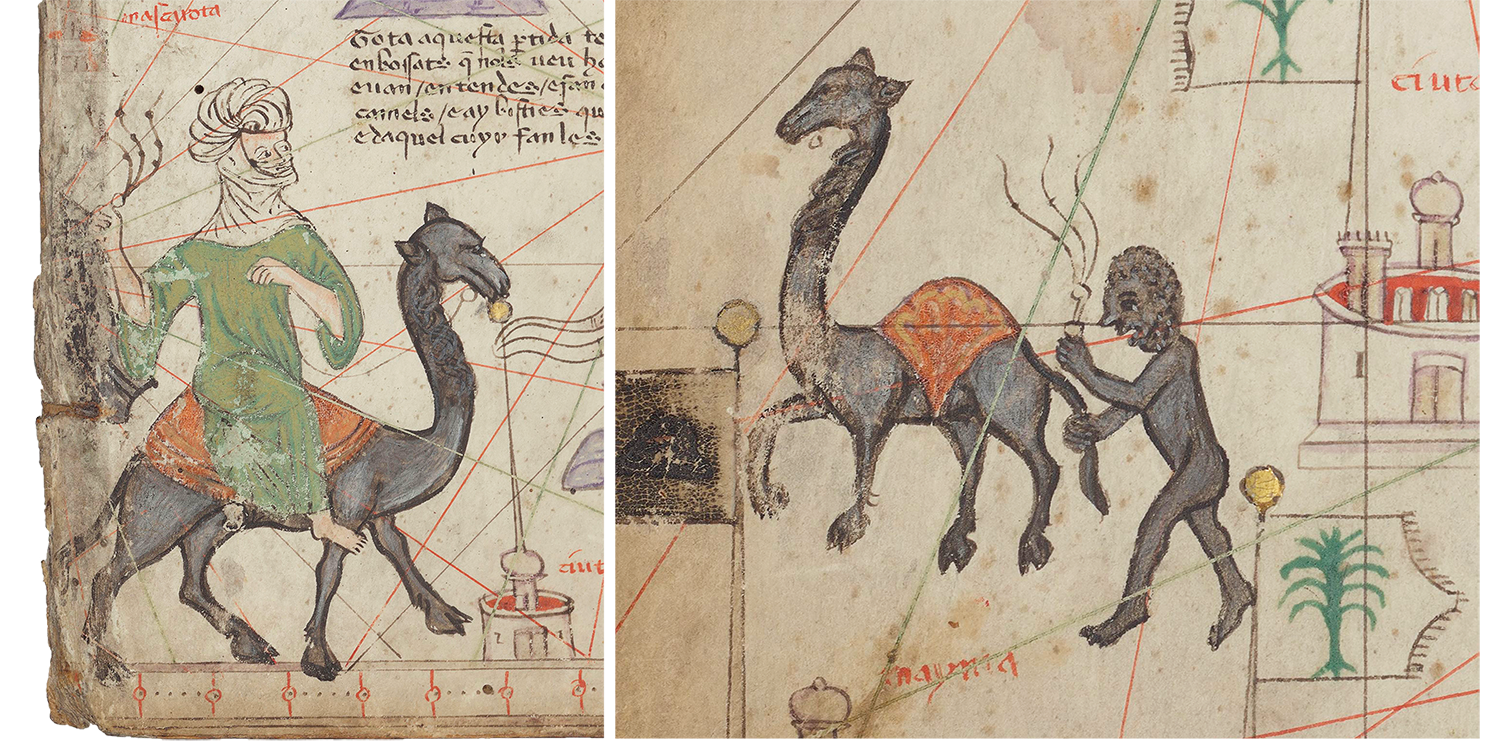 mascarota
Gota aquesta ptida te
enbossats q̄ nols veu ho
euan / en tendes / e fan
camels / e ay bisties que
e daquel cuyr fan les
ciut
ciuta